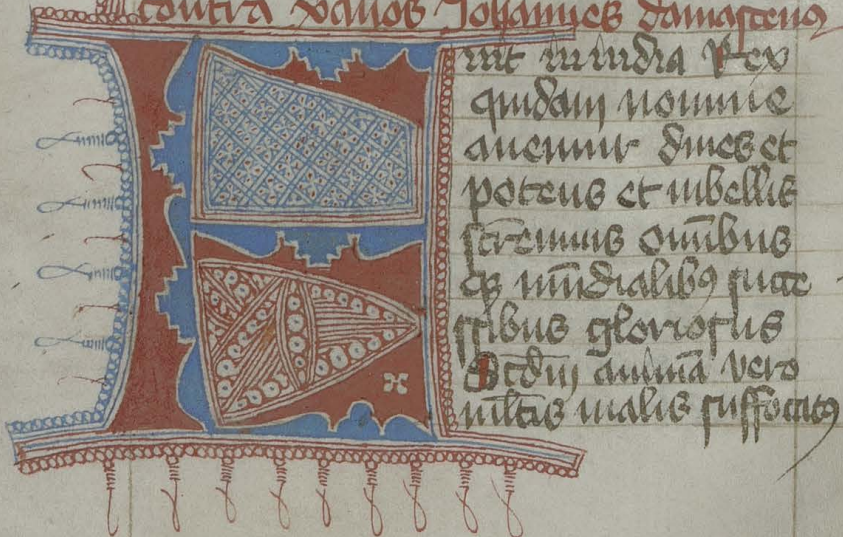 contra Johannes damascenus
uit in india Rex
quidam nomine
auennir diues et
potens et in bellis
strenuus omnibus
mundialibus succe
ssibus gloriosus
animam vero
multis malis suffocatus